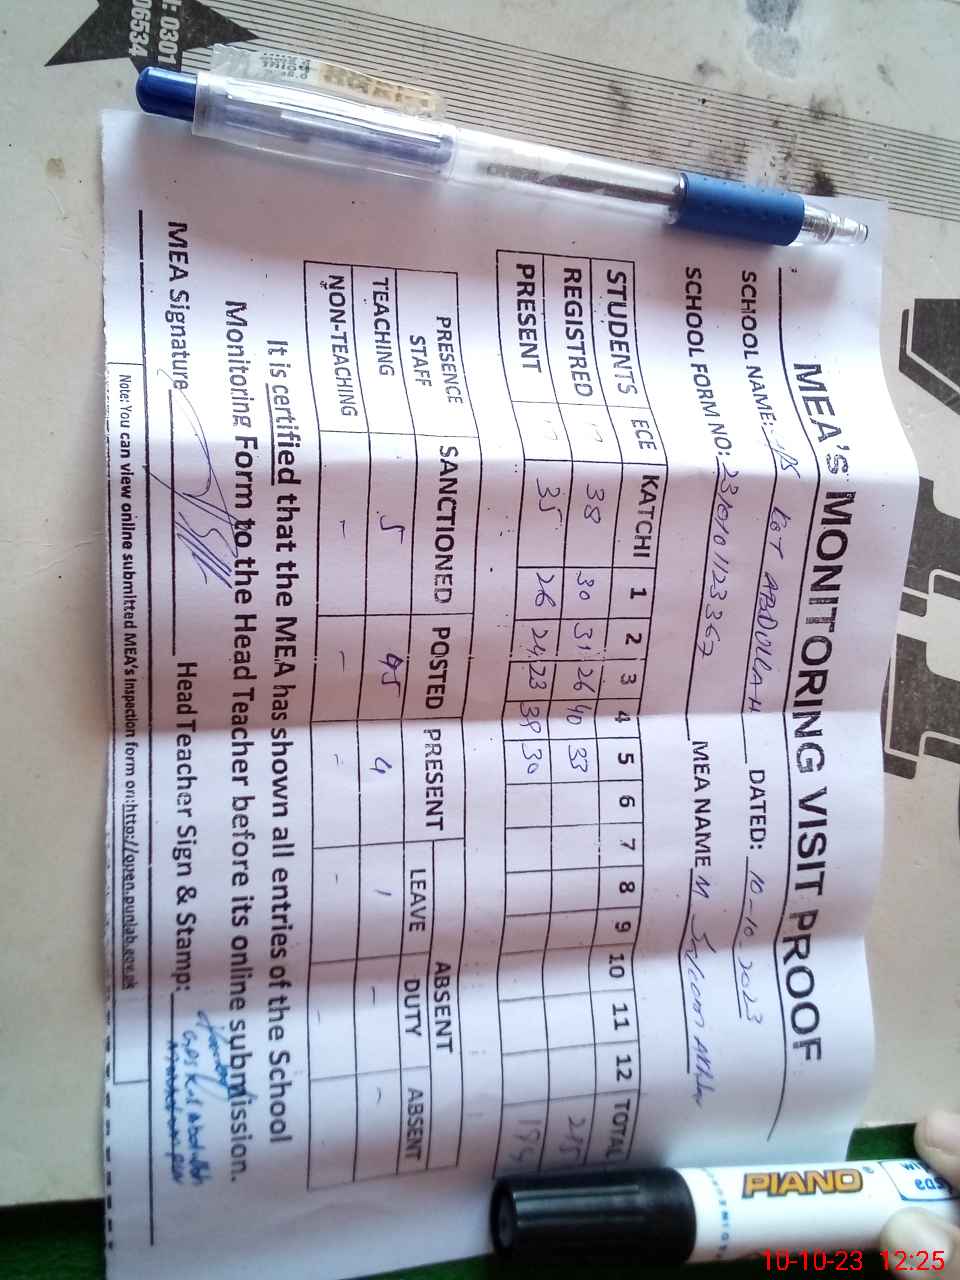 MEA'S MONITORING VISIT PROOF
SCHOOL NAME: KOT ABDULLAH DATED: 10-10-2023
SCHOOL FORM NO: MEA NAME M Saleem Akhtar
STUDENTS ECE KATCHI 1 2 3 4 5 6 7 8 9 10 11 12 TOTAL
REGISTRED 38 30 31 26 40 33
PRESENT 35 26 24 23 30
PRESENCE STAFF SANCTIONED POSTED PRESENT ABSENT
LEAVE DUTY ABSENT
TEACHING 5 5 4 1 - -
NON-TEACHING - - - - -
It is certified that the MEA has shown all entries of the School
Monitoring Form to the Head Teacher before its online submission.
MEA Signature Head Teacher Sign & Stamp:
GPS Kot Abdullah
Note: You can view online submitted MEA's Inspection form on:http://open.punjab.gov.pk
: 0301
06534
PIANO
10-10-23 12:25